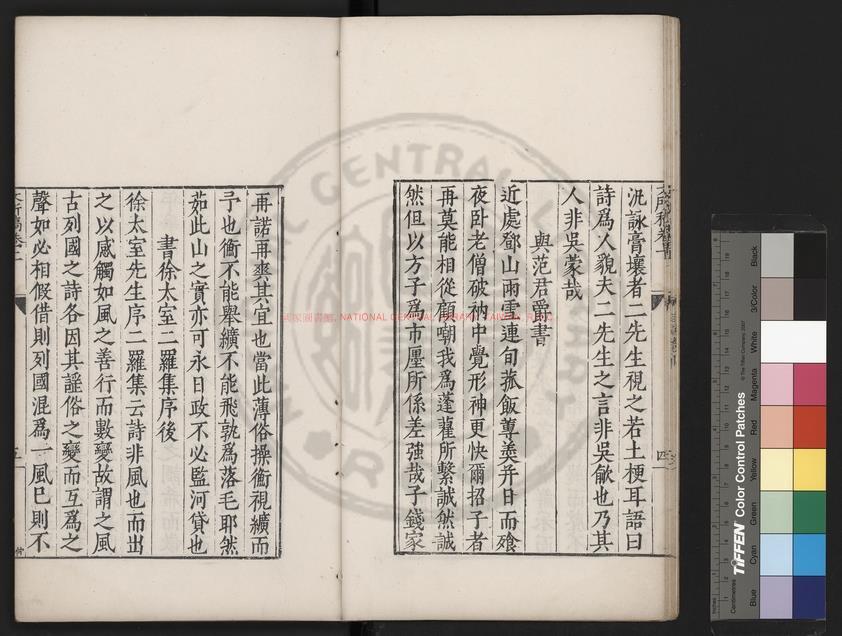 汎詠膏壤者二先生視之若土梗耳語曰
詩爲人貌夫二先生之言非吳歈也乃其
人非吳蒙哉
與范君爵書
近處鄧山雨雪連旬菰飯蓴羹并日而飧
夜卧老僧破衲中覺形神更快爾招子者
再莫能相從顧嘲我爲蓬藋所繫誠然誠
然但以方子爲市廛所係差强哉子錢家
再諾再爽其宜也當此薄俗操衡視纊而
予也衡不能舉纊不能飛孰爲落毛耶然
茹此山之實亦可永日政不必監河貸也
書徐太室二羅集序後
徐太室先生序二羅集云詩非風也而出
之以感觸如風之善行而數變故謂之風
古列國之詩各因其謡俗之變而互爲之
聲如必相假借則列國混爲一風已則不
國家圖書館, NATIONAL CENTRAL LIBRARY, TAIWAN, R.O.C.
CENTRAL
TIFFEN Color Control Patches
© The Tiffen Company, 2007
Centimetres
Inches
Blue
Cyan
Green
Yellow
Red
Magenta
White
3/Color
Black